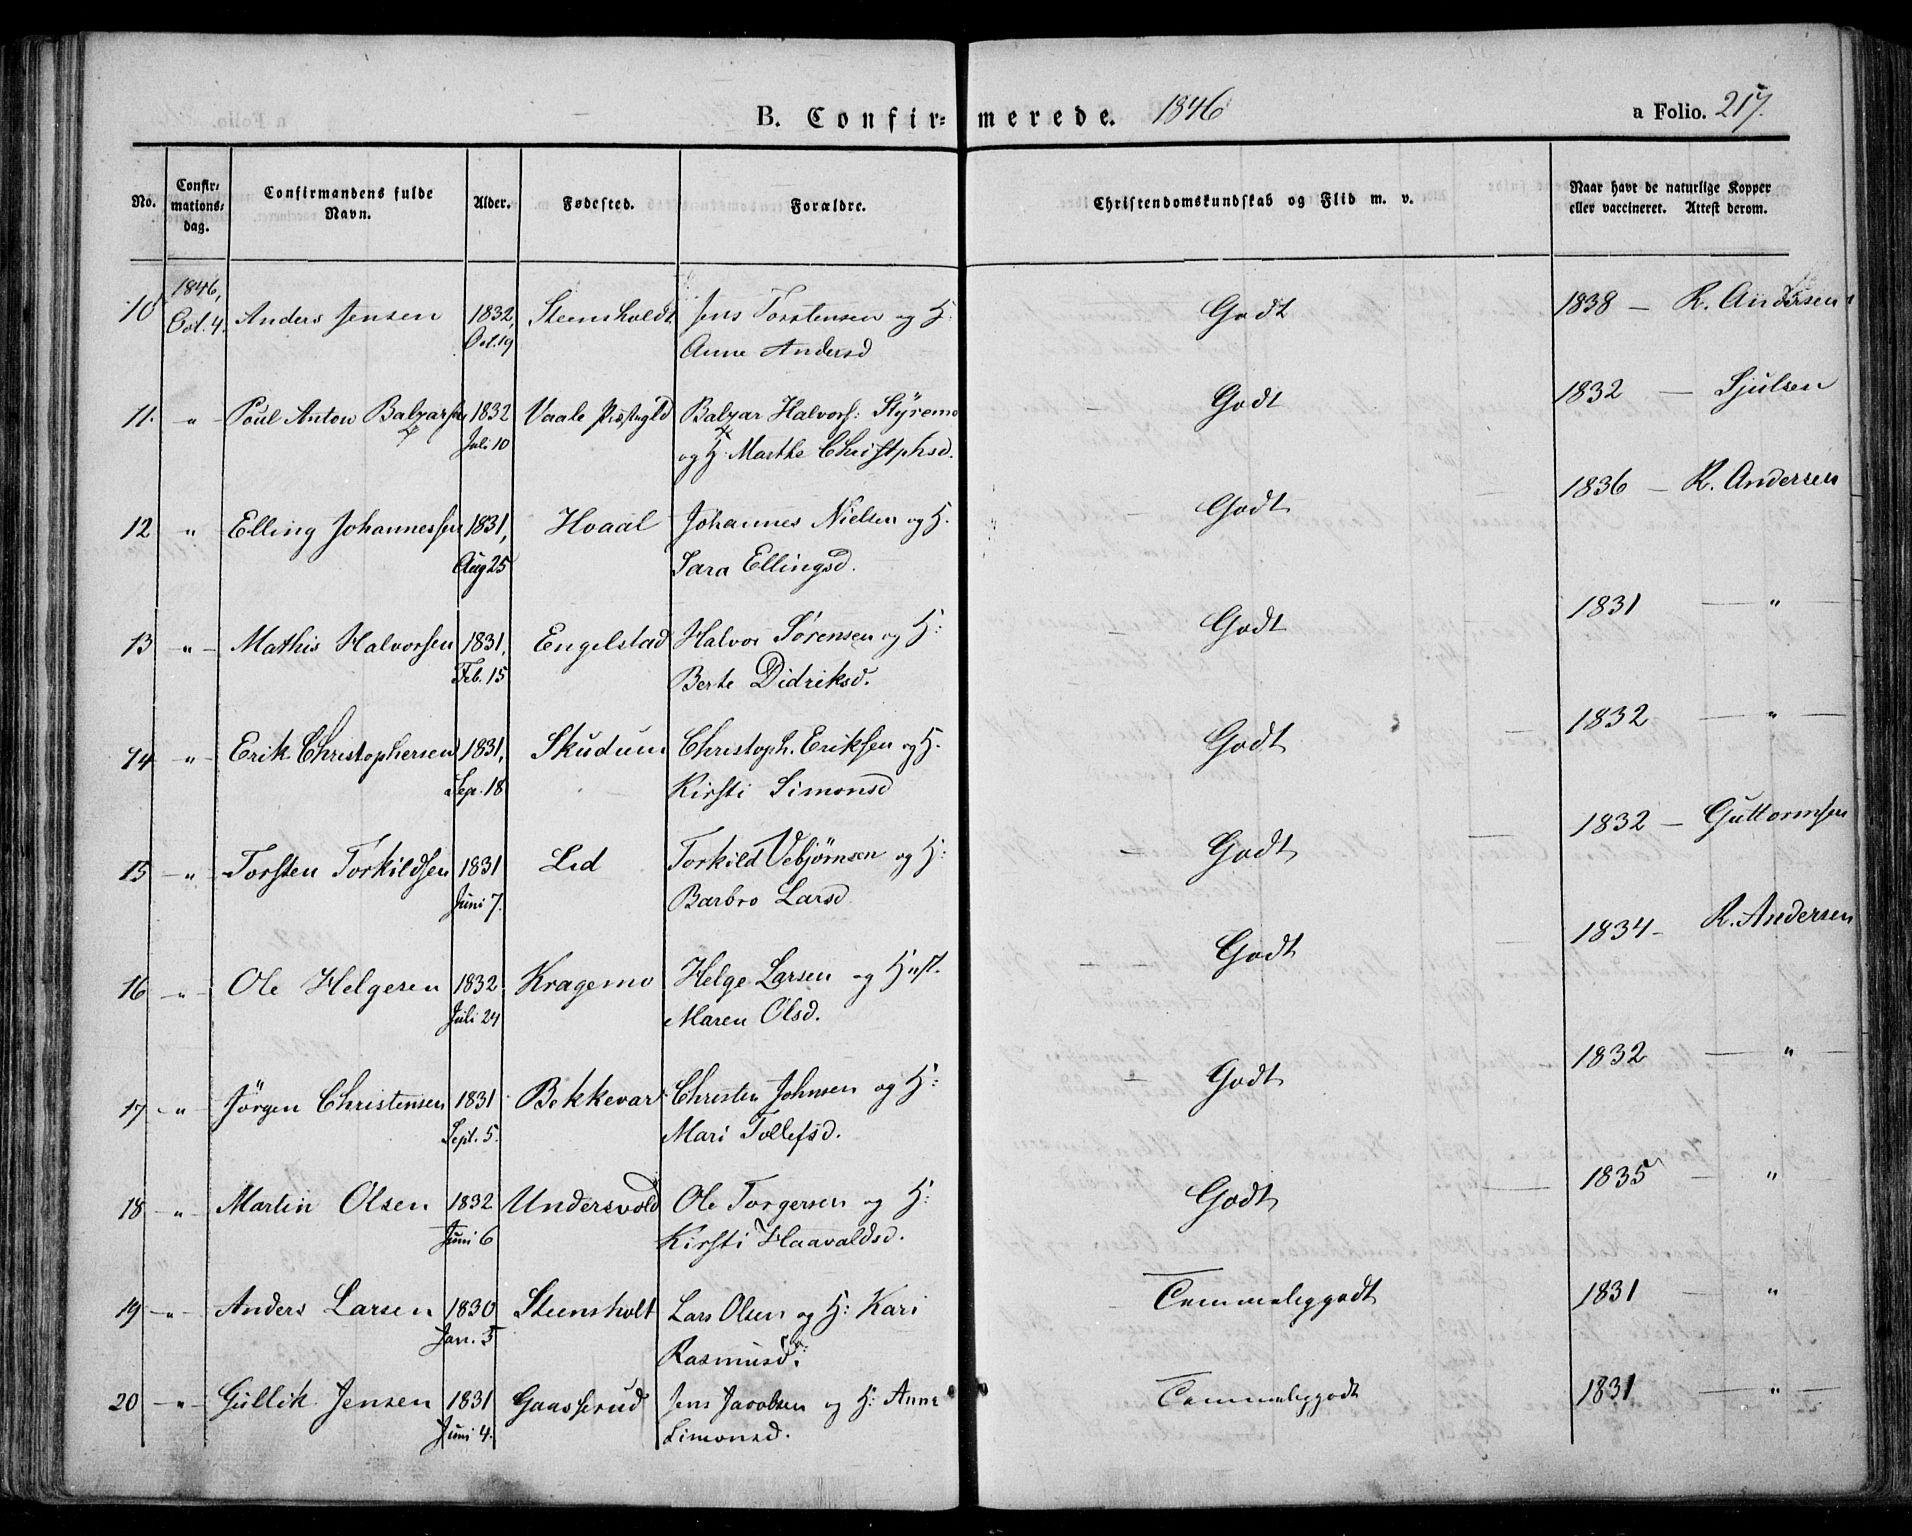 B. Confirmerede. 1846 a Folio. 217.
No. Confirmationsdag. Confirmandens fulde Navn. Alder. Fødested. Forældre. Christendomskundskab og Flid m. v. Naar havt de naturlige Kopper eller vaccineret. Attest derom.
10 1846, Oct. 4. Anders Jensen 1832, Steensholdt Jens Torstensen og H: Godt 1838 — R. Andersen
Oct. 19 Anne Andersd
11. " Poul Anton Balzarsen 1832 Vaale Præstegld Balzar Halvors: Styremo Godt 1832 — Sjulsen
Juli 10 og H. Marthe Christphsd.
12 " Elling Johannessen 1831, Hvaal Johannes Nielsen og H. Godt 1836 — R. Andersen
Aug 25 Sara Ellingsd.
13 " Mathis Halvorsen 1831, Engelstad Halvor Sørensen og H: Godt 1831 — "
Feb. 15 Berte Didriksd.
14 " Erik Christophersen 1831, Skudum Christoph. Eriksen og H. Godt 1832 — "
Sep. 18 Kirsti Simonsd
15 " Torsten Torkildsen 1831 Lid Torkild Vebjørnsen og H: Godt 1832 — Guttormsen
Juni 7. Barbro Larsd
16 " Ole Helgesen 1832 Kragemo Helge Larsen og Hust. Godt 1834 — R. Andersen
Juli 24 Maren Olsd.
17 " Jørgen Christensen 1831 Bekkevar Christen Johnsen og H: Godt 1832 — "
Sept. 5. Mari Tollefsd.
18 " Martin Olsen 1832 Undersvold Ole Torgersen og H: Godt 1835 — "
Juni 6 Kirsti Haavaldsd.
19 " Anders Larsen 1830 Steensholt Lars Olsen og H: Kari Temmeliggodt 1831 — "
Jan. 5 Rasmusd:
20 " Gullik Jensen 1831 Gaasserud Jens Jacobsen og H: Anne Temmeliggodt 1831 — "
Juni 4. Simonsd.